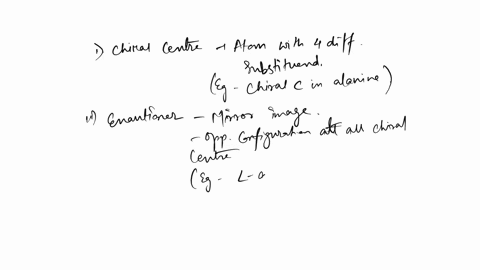 i) Chiral Centre → Atom with 4 diff.
Substituend.
(Eg - Chiral C in alanine)
ii) Enantiomer - Mirror image.
- Opp. Configuration at all chiral
Centre
(Eg - L-a